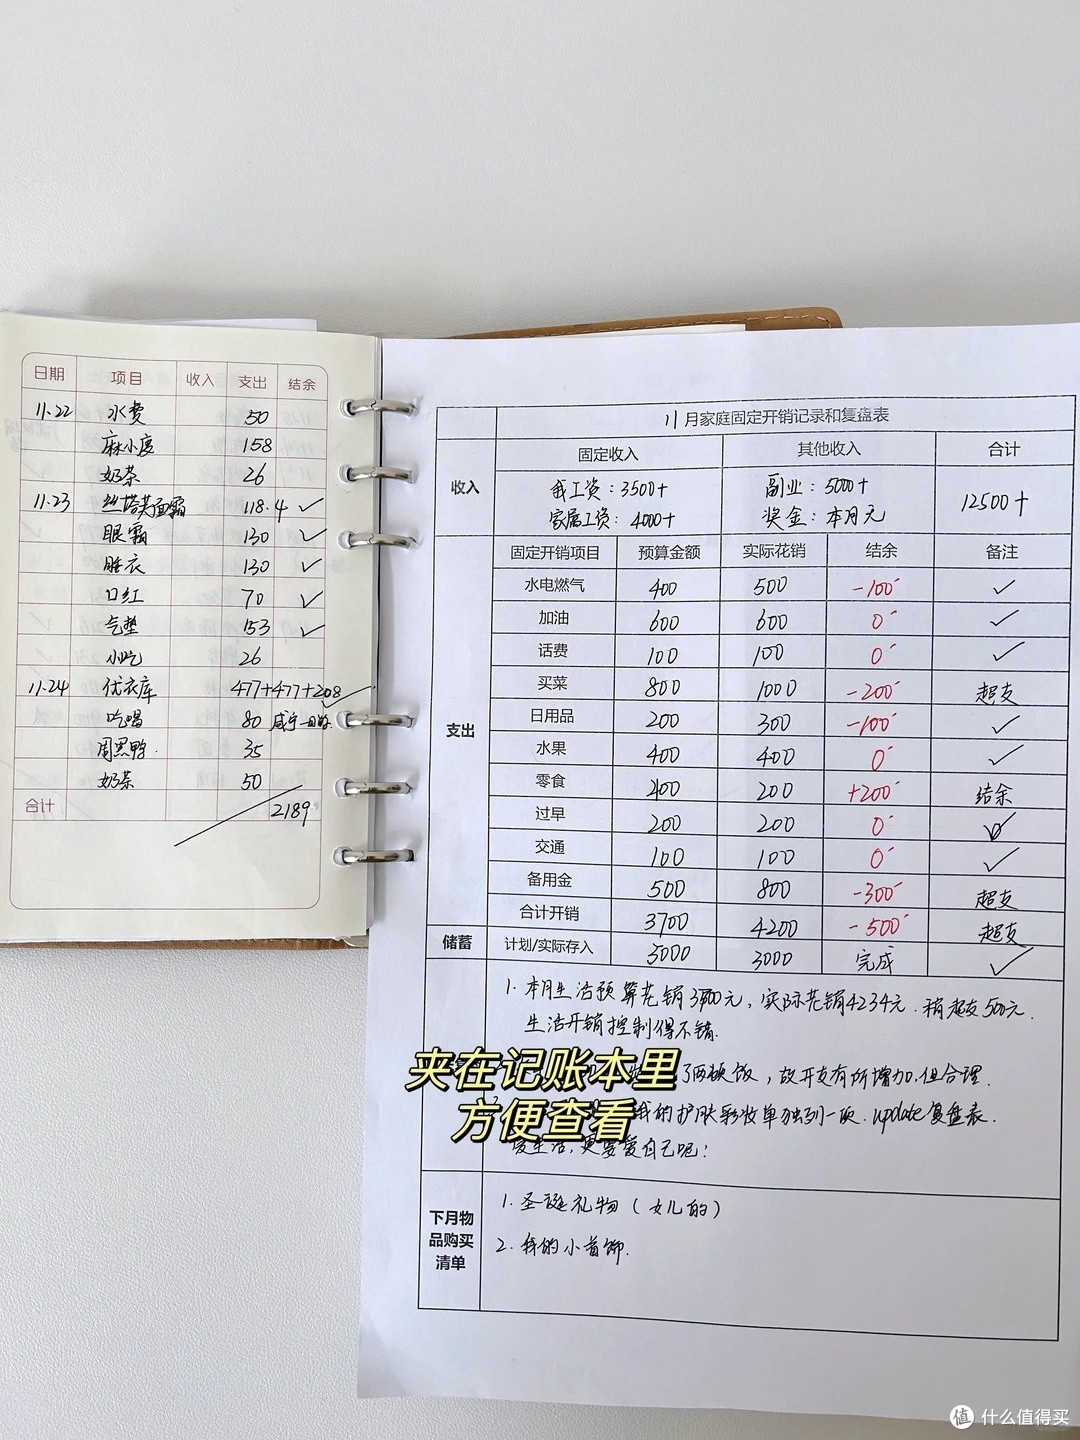 日期 项目 收入 支出 结余
11.22 水费 50
麻小虔 158
奶茶 26
11.23 丝塔芙面霜 118.4 ✓
眼霜 130 ✓
睡衣 130 ✓
口红 70 ✓
气垫 153 ✓
小吃 26
11.24 优衣库 477+477+208 ✓
吃喝 80 咸宁一日游.
周黑鸭. 35
奶茶 50
合计 2189
11月家庭固定开销记录和复盘表
收入 固定收入 其他收入 合计
我工资：3500+ 副业：5000+ 12500+
家属工资：4000+ 奖金：本月无
支出 固定开销项目 预算金额 实际花销 结余 备注
水电燃气 400 500 -100 ✓
加油 600 600 0 ✓
话费 100 100 0 ✓
买菜 800 1000 -200 超支
日用品 200 300 -100 ✓
水果 400 400 0 ✓
零食 400 200 +200 结余
过早 200 200 0 ✓
交通 100 100 0 ✓
备用金 500 800 -300 超支
合计开销 3700 4200 -500 超支
储蓄 计划/实际存入 3000 3000 完成 ✓
1. 本月生活预算花销3700元，实际花销4234元.稍超支500元.
生活开销控制得不错.
了两顿饭，故开支有所增加.但合理.
我的护肤彩妆单独列一项.update复盘表.
爱生活，更要爱自己吧！
夹在记账本里
方便查看
下月物品购买清单
1. 圣诞礼物（女儿的）
2. 我的小首饰.
值 什么值得买